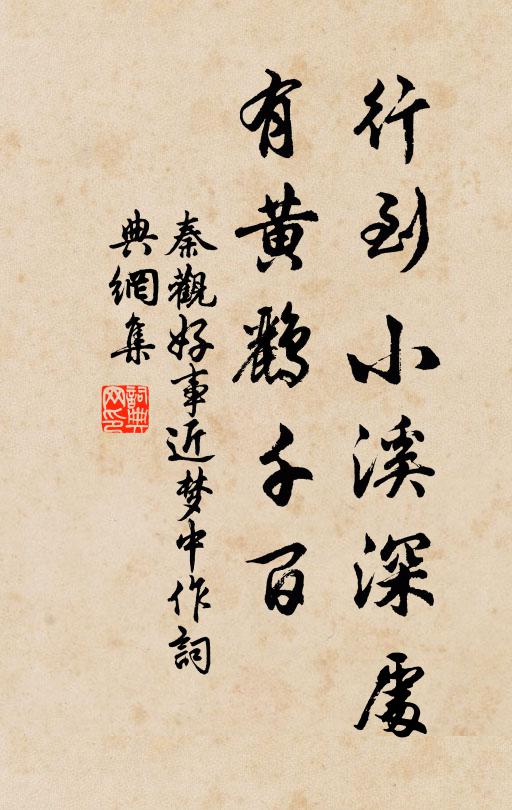 行到小溪深處
有黃鸝千百
秦觀好事近梦中作詞
典網集
詞典
网印